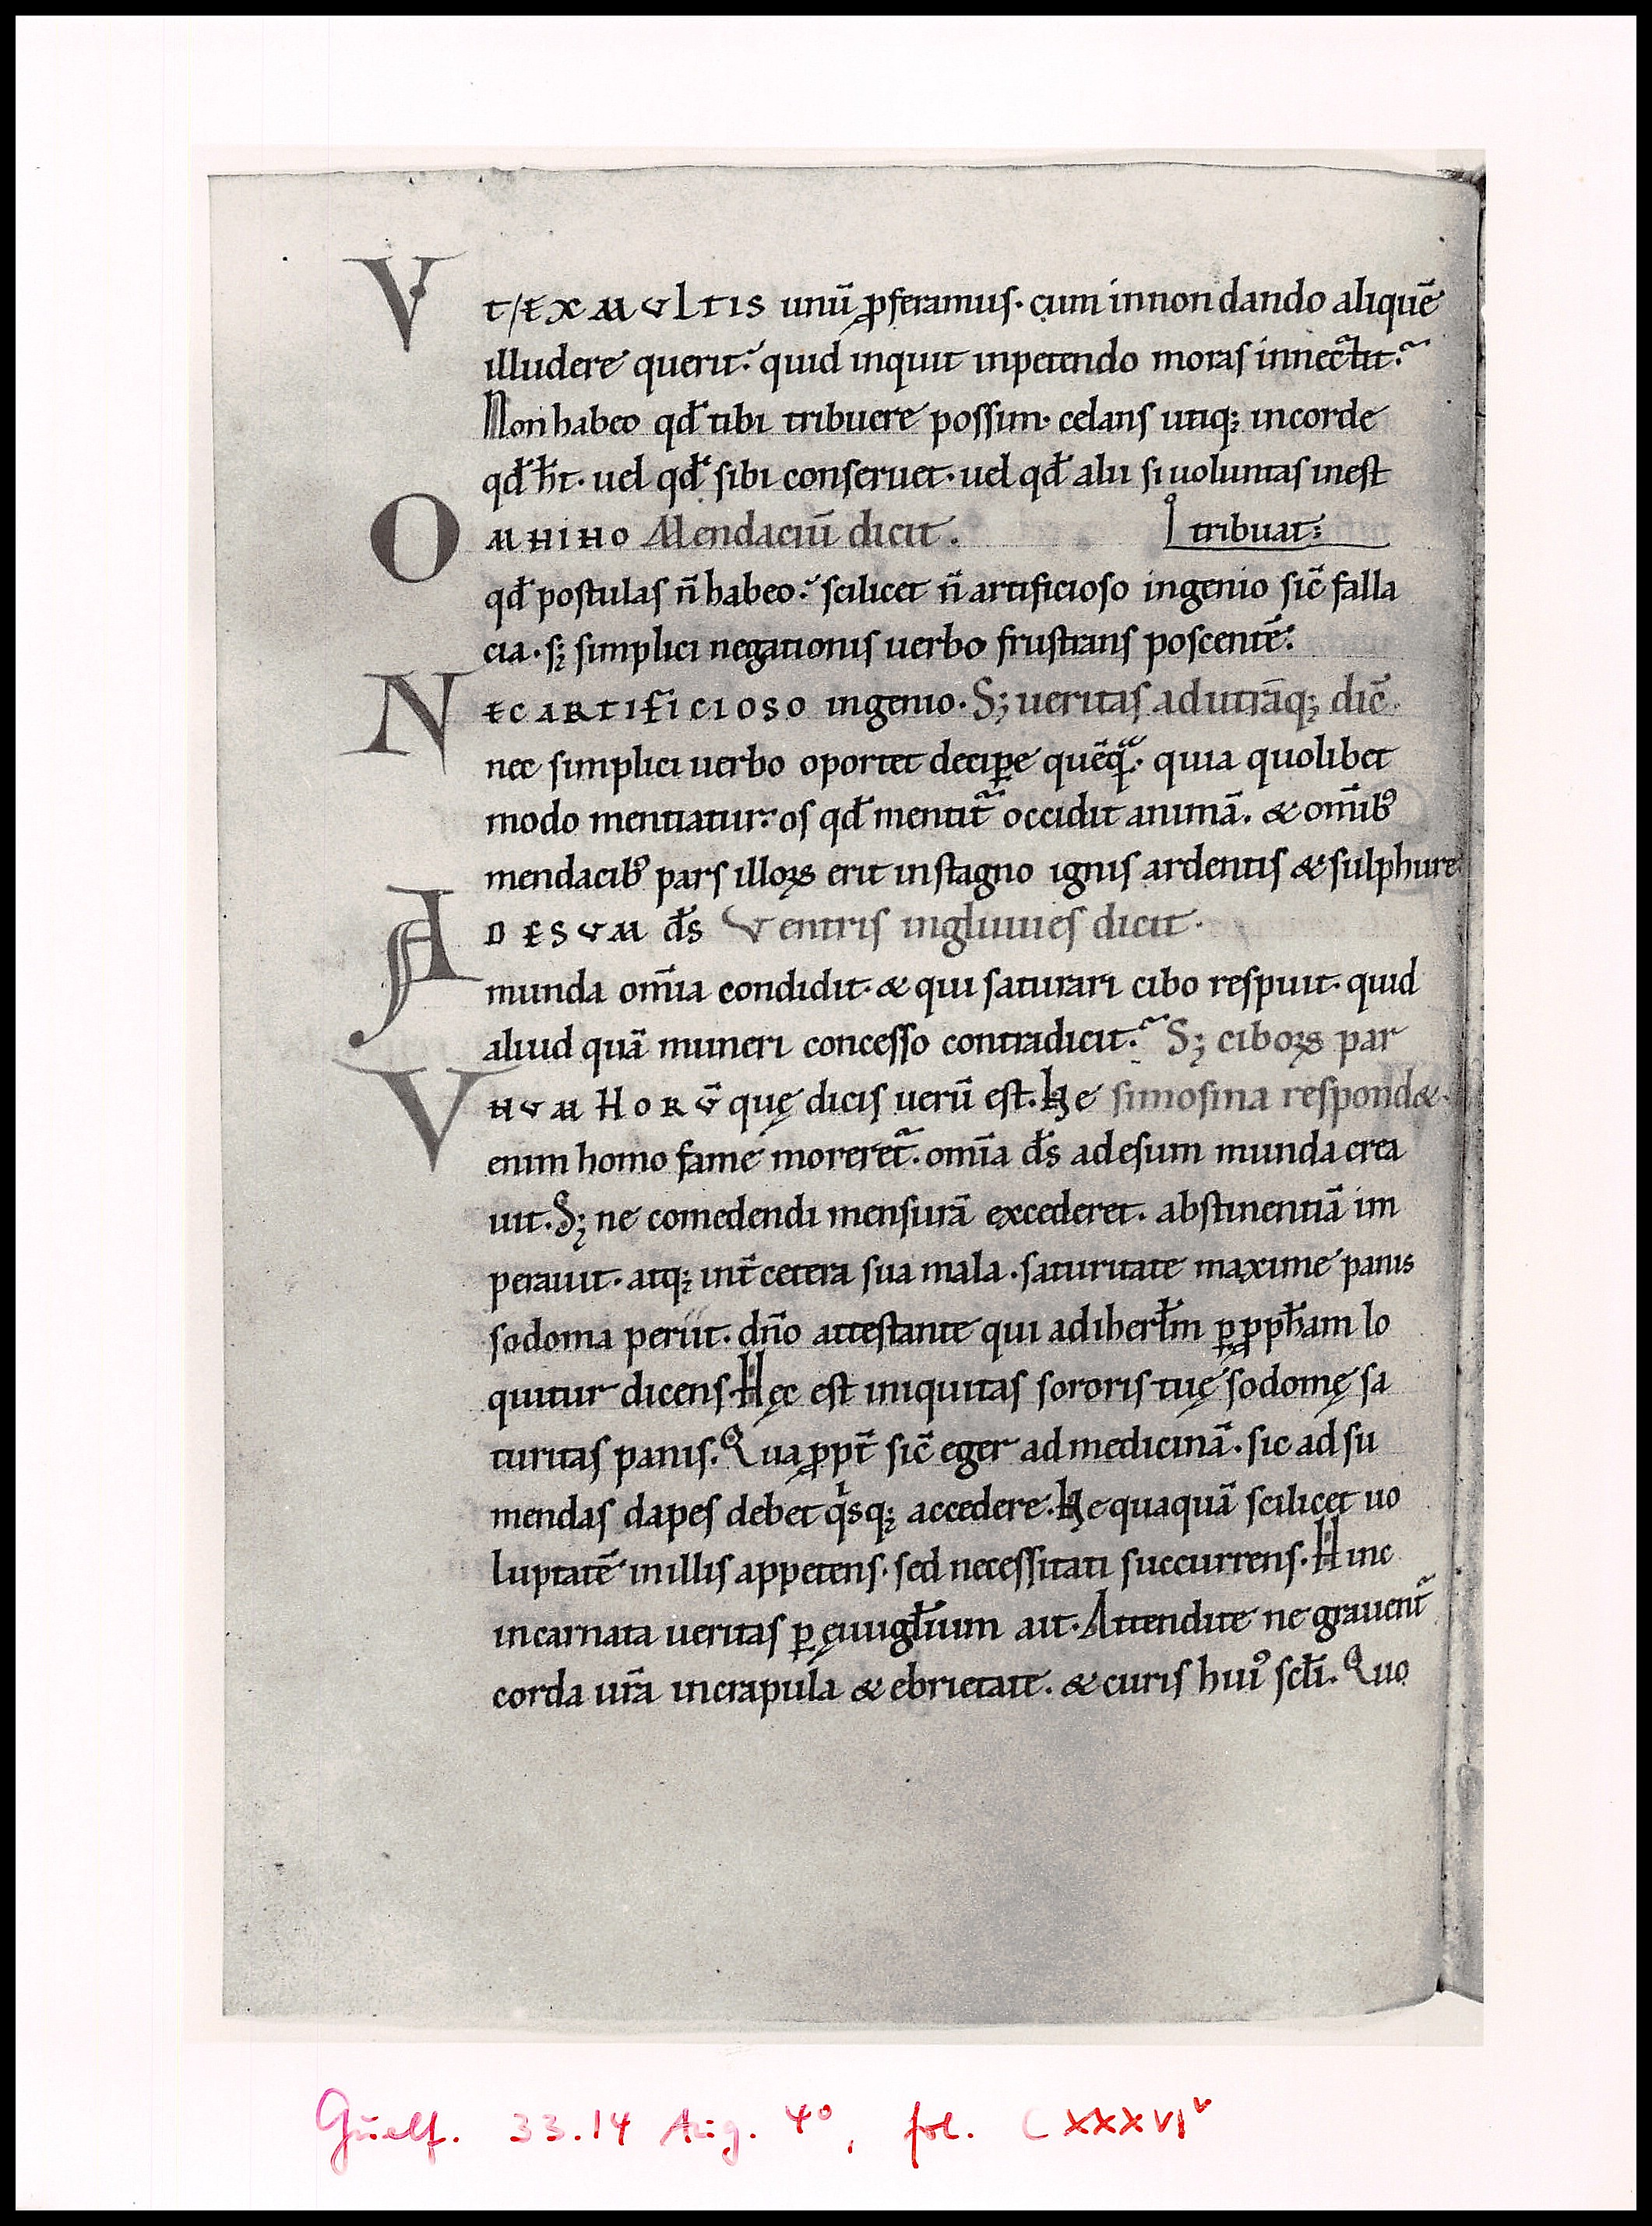 VT EX MVLTIS unū ꝓferamus· cum in non dando aliquē
illudere querit· quid inquit in petendo moras innectit·
Non habeo qđ tibi tribuere possim· celans utiq; in corde
qđ ħt· uel qđ sibi conseruet· uel qđ alii si uoluntas inest
tribuat:
OMNINO Mendaciū dicit.
qđ postulas n̄ habeo· scilicet n̄ artificioso ingenio sic̄ falla
cia· sꝫ simplici negationis uerbo frustrans poscentē·
NEC ARTIFICIOSO ingenio· Sꝫ ueritas ad utrāq; dic̄·
nec simplici uerbo oportet deciꝑe quēq̄· quia quolibet
modo mentiatur· os qđ mentit᷑ occidit animā. & om̄ibꝰ
mendacibꝰ pars illoꝝ erit in stagno ignis ardentis & sulphure
AD ESVM ds̄ Ventris ingluuies dicit·
munda om̄ia condidit· & qui saturari cibo respuit· quid
aliud quā muneri concesso contradicit· Sꝫ ciboꝝ par
VNVM HORV̄ quę dicis uerū est. Ne simosina respond&·
enim homo fame moreret᷑· om̄ia ds̄ ad esum munda crea
uit. Sꝫ ne comedendi mensurā excederet. abstinentiā im
perauit· atq; int̄ cetera sua mala· saturitate maxime panis
sodoma periit· dn̄o attestante qui ad iherłm ꝑ ꝓpħam lo
quitur dicens· Hęc est iniquitas sororis tuę sodomę sa
turitas panis. Quaꝓpt̄ sic̄ eger ad medicinā· sic ad su
mendas dapes debet q̇sq; accedere. Nequaquā scilicet uo
luptatē in illis appetens· sed necessitati succurrens· Hinc
incarnata ueritas ꝑ ęuuigłium ait· Attendite ne grauent᷑
corda ur̄a in crapula & ebrietate. & curis huiꝰ scłi. Quo
Guelf. 33.14 Aug. 4°, fol. CXXXVIᵛ